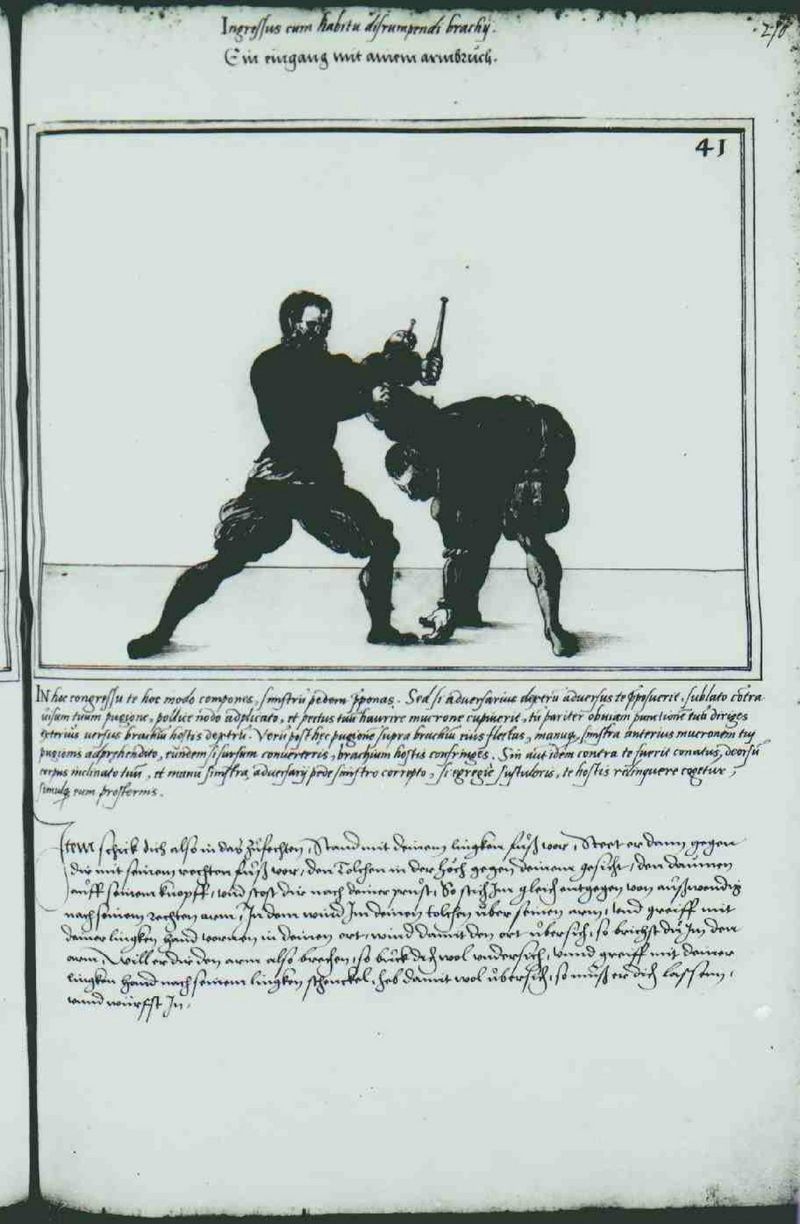 Ingressus cum habitu disrumpendi brachij.
Ein eingang mit ainem armbruch.
41
IN hoc congressu te hoc modo compones, sinistrū pedem p̄ponas. Sed si adversarius dextrū adversus te p̄posuerit, sublato cōtra
visum tuum pugione, pollice nodo adplicato, et pectus tuū haurire mucrone cupiuerit, tu pariter obuiam punctionē tuā diriges
exterius versus brachiū hostis dextrū. Verū post hec pugione supra brachiū eius flectas, manuq; sinistra anterius mucronem tuj
pugionis adprehendito, eundem si sursum converteris, brachium hostis confringes. Sin aut idem contra te fuerit conatus, deorsū
corpus inclinato tuū, et manū sinistra, adversarij pede sinistro correpto, si egregiè sustuleris, te hostis relinquere cogetur,
simulq; eum prosternis.
Item schick dich also in das zůfechten, Stand mit deinem lingken fůß vor, Steet er dann gegen
dir mit seinem rechten fůß vor, den Tolchen in der höch gegen deinem gesicht, den daumen
auff seinem knopff, vnd stost dir nach deiner prust, So stich Im gleich entgegen von außwendig
nach seinem rechten arm, In dem wind Im deinen tolchen über seinen arm, vnd greiff mit
deiner lingken hand vornen in deinen ort, wind damit den ort übersich, so brichst du Im den
arm, Will er dir den arm also brechen, so buck dich wol undersich, vnnd greiff mit deiner
lingken hand nach seinem lingken schenckel, heb damit wol übersich, so můß er dich lassen,
vnnd würffst In.